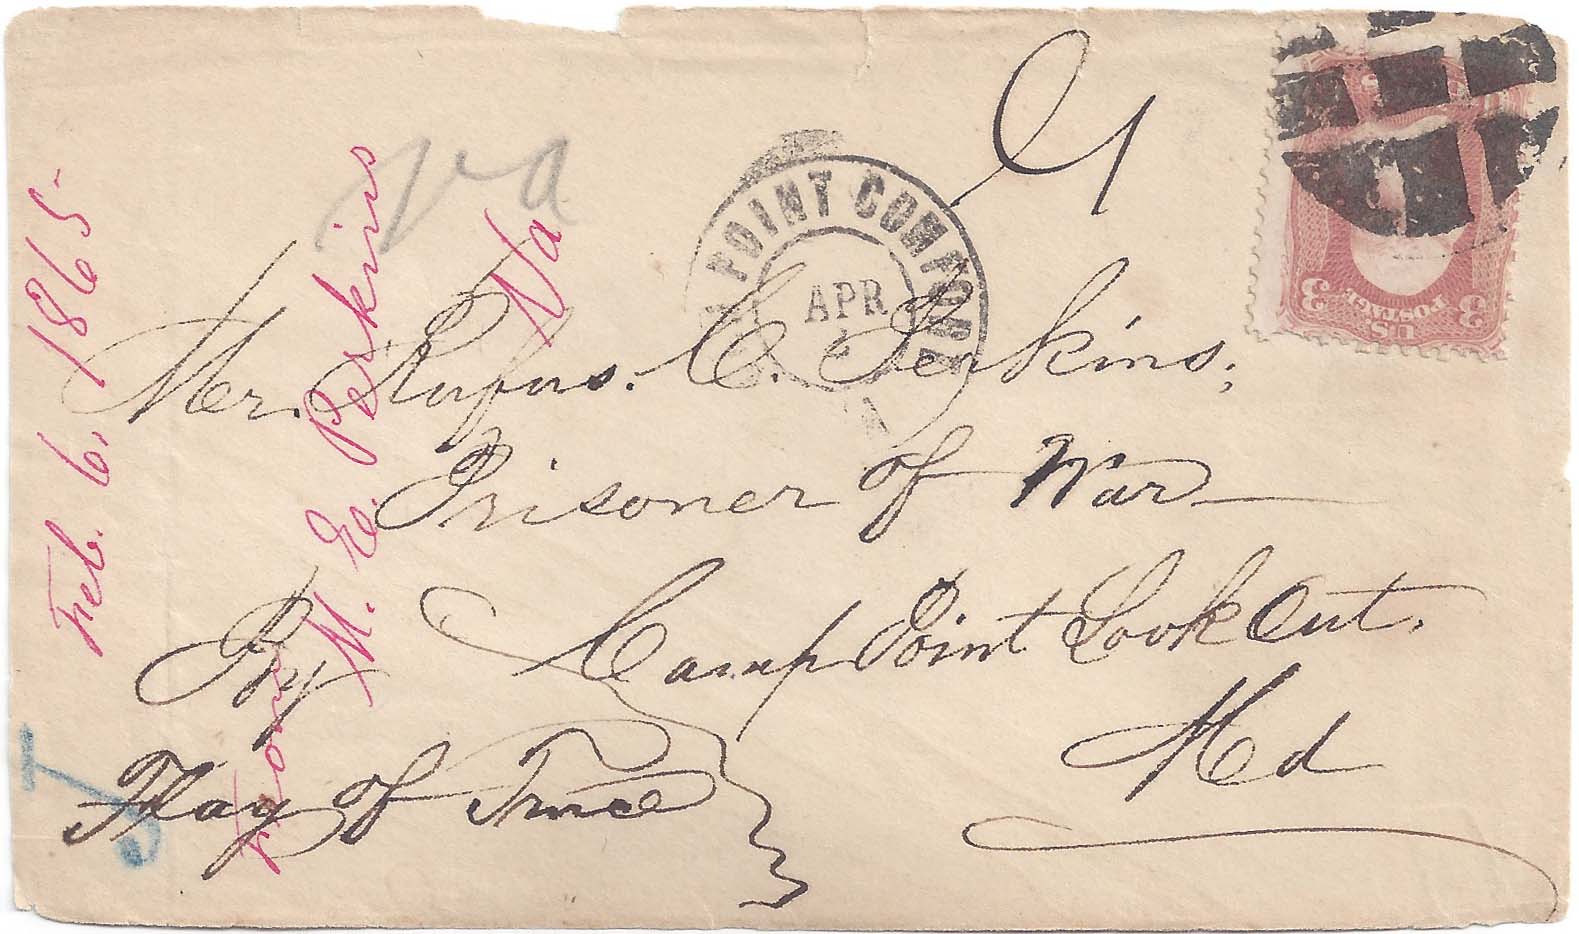 Va
POINT COMFORT
APR
VA
Mr. Rufus. C. Perkins;
Prisoner of War
Camp Point Look Out,
Md
By
Flag of Truce
Feb. 6, 1865
From M. E. Perkins
Va
3 U.S. POSTAGE 3
5